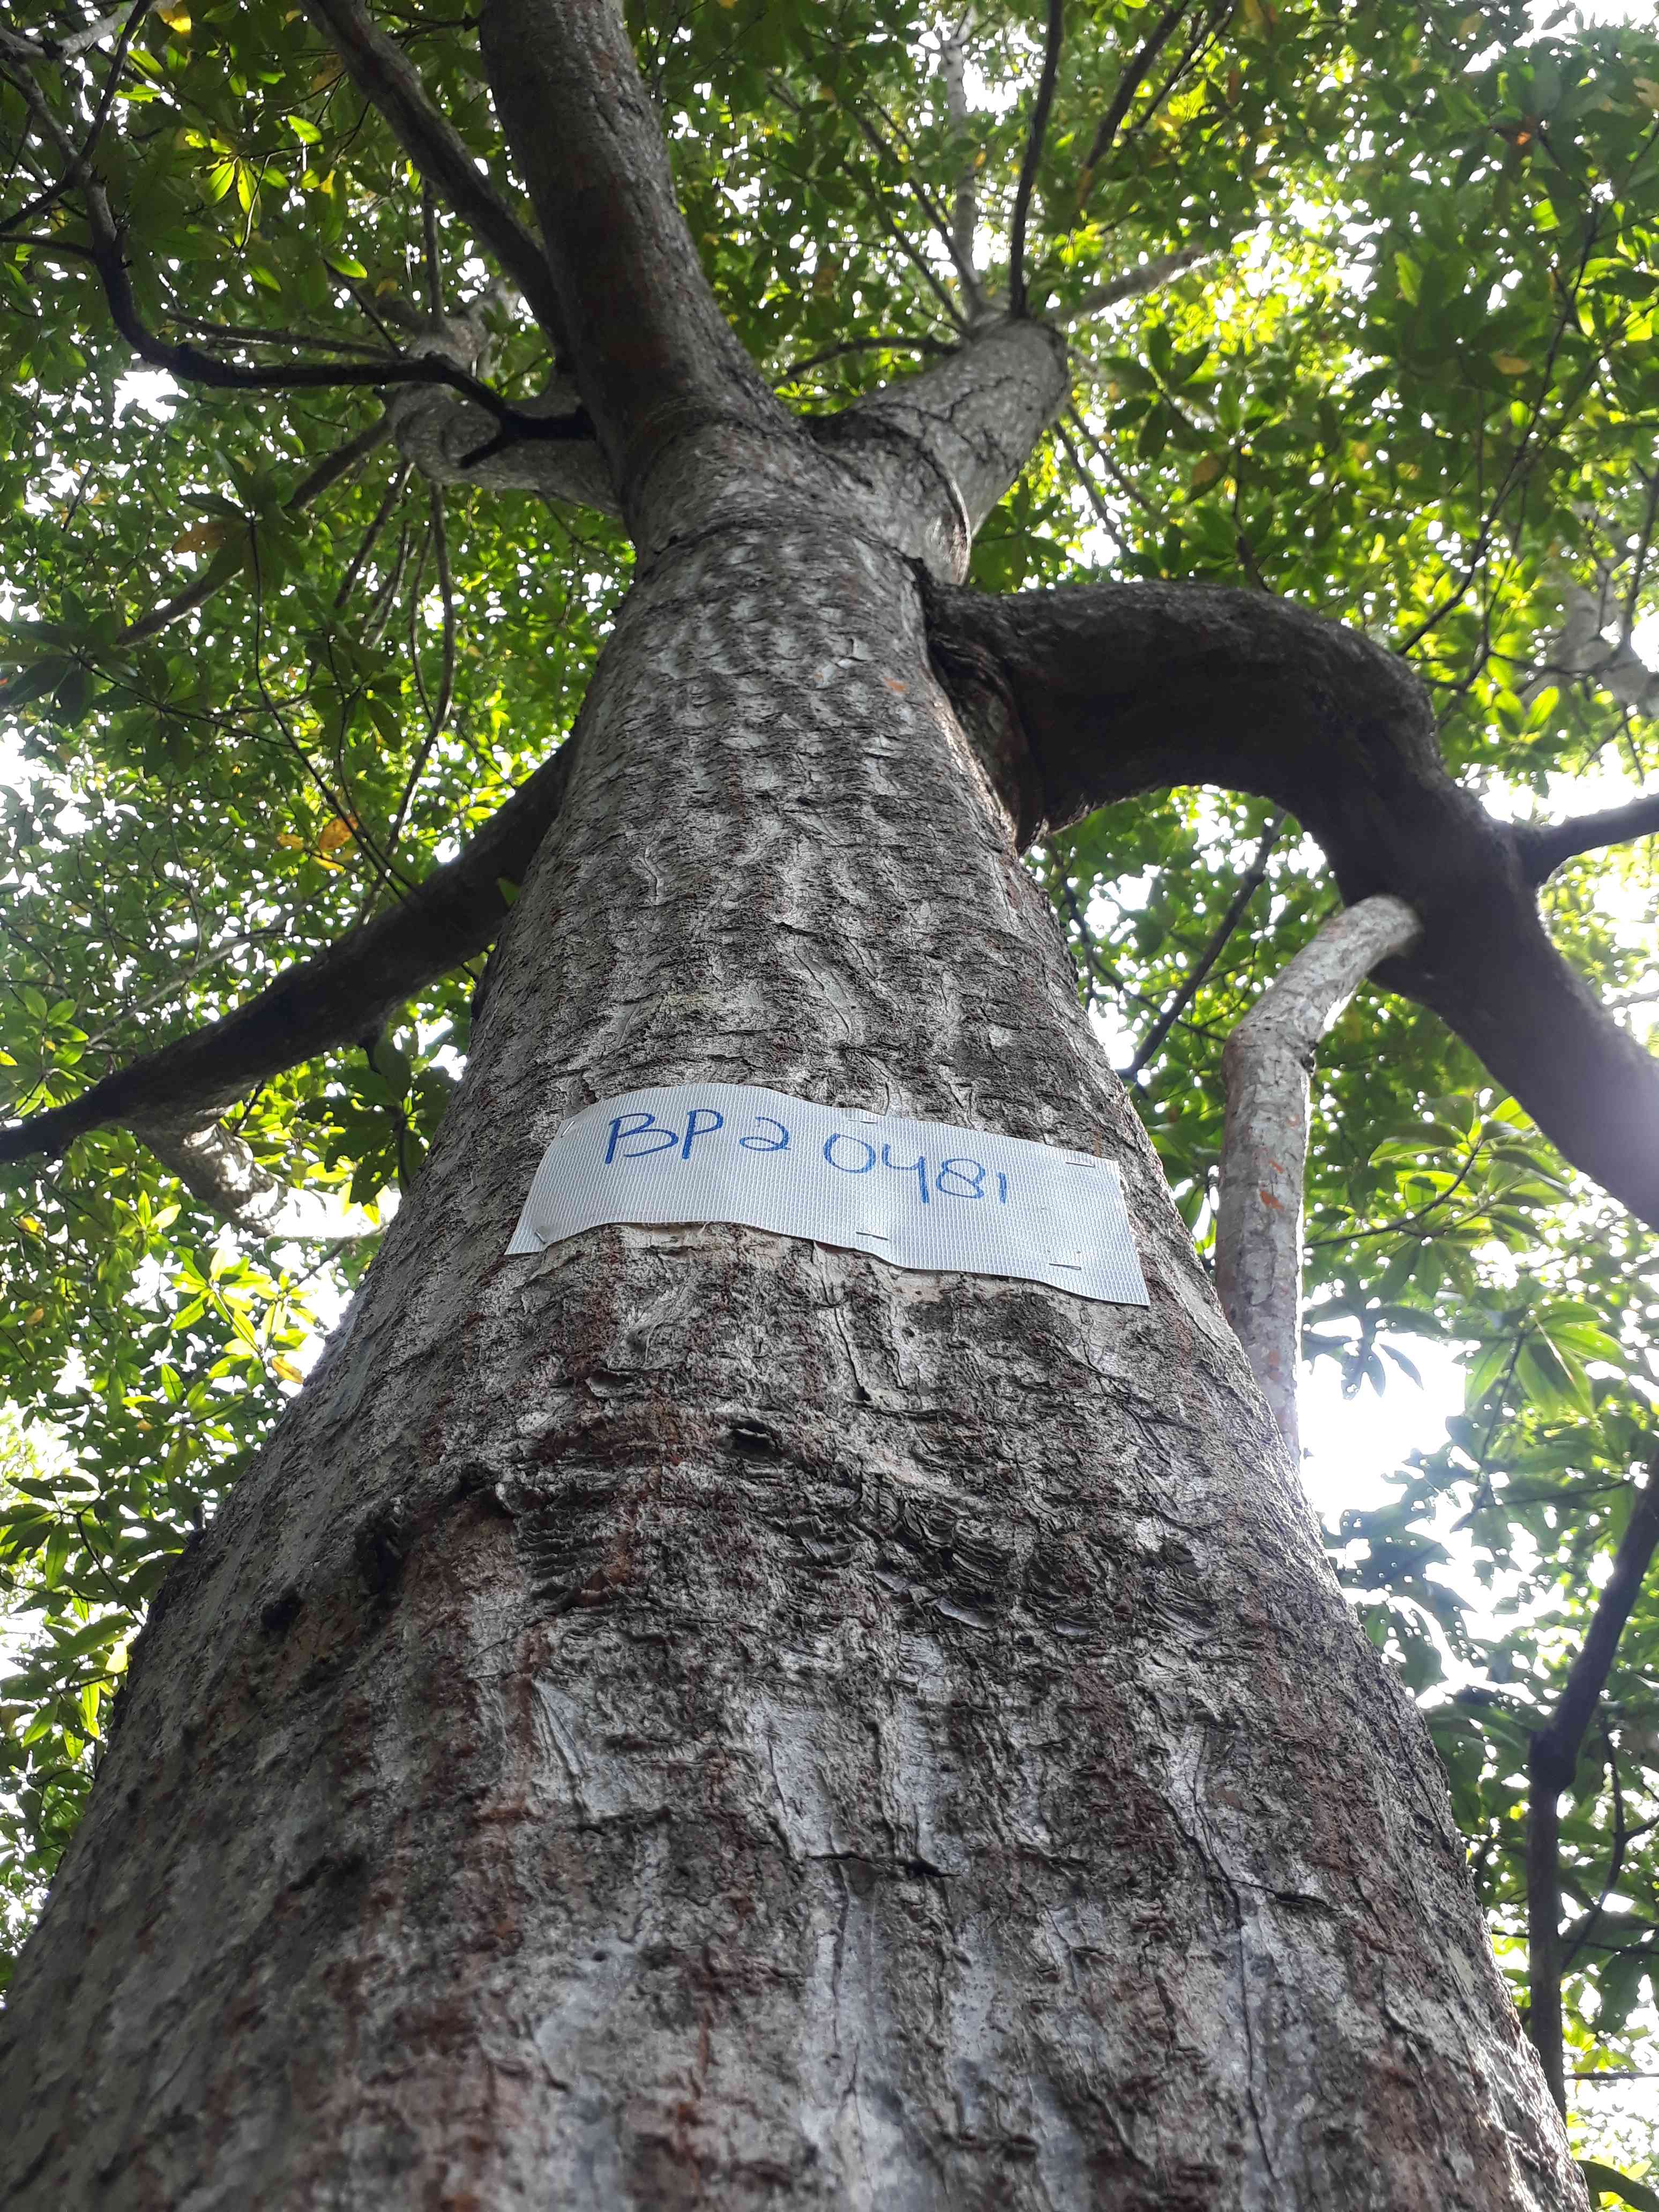 BP2 0481